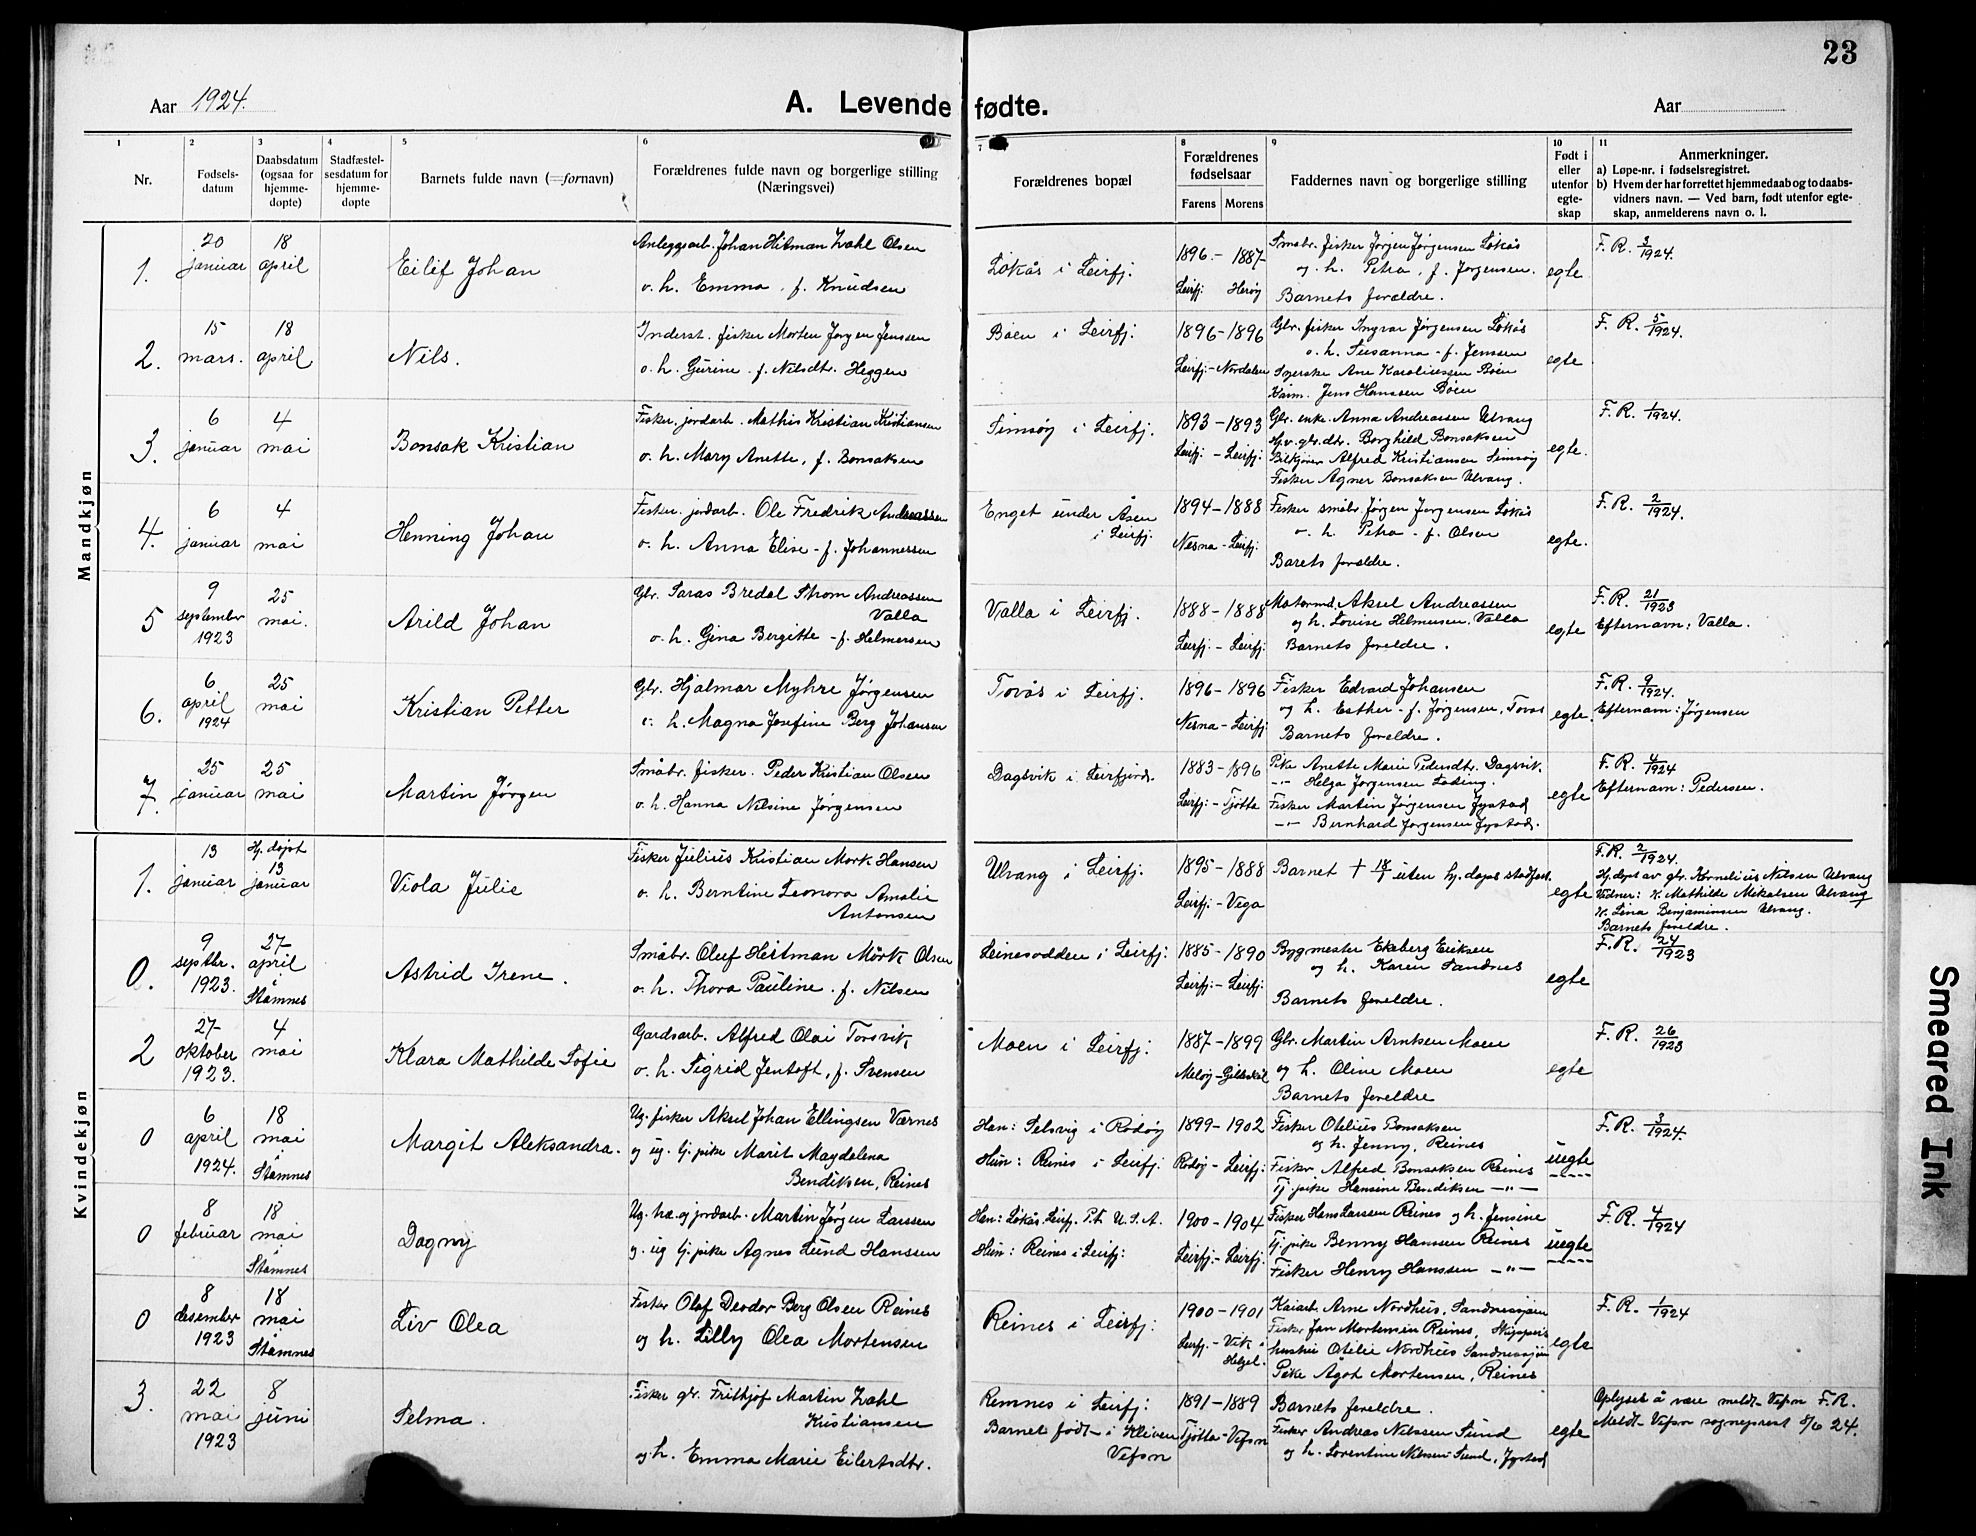 23
Aar 1924.
A. Levende fødte.
Aar
1
2
3
4
5
6
7
8
9
10
11
Nr.
Fødsels-
datum
Daabsdatum
(ogsaa for
hjemme-
døpte)
Stadfæstel-
sesdatum for
hjemme-
døpte
Barnets fulde navn (=fornavn)
Forældrenes fulde navn og borgerlige stilling
(Næringsvei)
Forældrenes bopæl
Forældrenes
fødselsaar
Farens
Morens
Faddernes navn og borgerlige stilling
Født i
eller
utenfor
egte-
skap
Anmerkninger.
a) Løpe-nr. i fødselsregistret.
b) Hvem der har forrettet hjemmedaab og to daabs-
vidners navn. — Ved barn, født utenfor egte-
skap, anmelderens navn o. l.
Mandkjøn
1.
20
januar
18
april
Eilif Johan
Anleggsarb. Johan Hitman Zahl Olsen
o. h. Emma, f. Knudsen
Løkås i Leirfj:
1896. - 1887
Leirfj: Herøy
Småbr. fisker Jørgen Jørgensen Løkås
og h. Petra, f. Jørgensen.
Barnets foreldre.
egte
F. R. 3/1924.
2.
15
mars.
18
april
Nils.
Inderst. fisker Morten Jørgen Jenssen
o. h. Gurine - f. Nilsdtr. Heggen
Bøen i Leirfj:
1896 - 1896
Leirfj: - Nordalen
Gbr. fisker Ingvar Jørgensen Løkås
o. h. Susanna - f. Jenssen
Syerske Ane Karoliussen Bøen
Kårm. Jens Hanssen Bøen
egte
F. R. 5/1924.
3.
6
januar
4
mai
Bonsak Kristian
Fisker, jordarb. Mathis Kristian Kristiansen
o. h. Mary Anette, f. Bonsaksen
Simsøy i Leirfj.
1893 - 1893
Leirfj: - Leirfj:
Gbr. enke Anna Andreassen Ulvang
gbr. dtr. Borghild Bonsaksen
Bilkjører Alfred Kristiansen Simsøy
Fisker Agner Bonsaksen Ulvang.
egte.
F. R. 1/1924.
4.
6
januar
4
mai
Henning Johan
Fisker. jordarb. Ole Fredrik Andreassen
o. h. Anna Elise - f. Johannessen
Enget under Åsen
i Leirfj.
1894 - 1888
Nesna - Leirfj:
Fisker småbr. Jørgen Jørgensen Løkås
o. h. Petra - f. Olsen
Barets foreldre.
egte.
F. R. 2/1924.
5
9
september
1923
25
mai.
Arild Johan
Gbr. Saras Bredal Strøm Andreassen
Valla
o. h. Gina Bergitte - f. Helmersen
Valla i Leirfj.
1888 - 1888
Leirfj: - Leirfj:
Motormd. Aksel Andreassen
og h. Lovise Helmersen, Valla
Barnets foreldre.
egte
F. R. 21/1923
Efternavn: Valla.
6.
6
april
1924
25
mai
Kristian Petter
Gbr. Hjalmar Myhre Jørgensen
o. h. Magna Josefine Berg Johansen
Tovås i Leirfj.
1896 - 1896
Nesna - Leirfj:
Fisker Edvard Johansen
og h. Esther - f. Jørgensen, Tovås
Barnets foreldre.
egte.
F. R. 9/1924.
Efternavn: Jørgensen
7.
25
januar
25
mai
Martin Jørgen
Småbr. fisker. Peder Kristian Olsen
o. h. Hanna Nilsine Jørgensen
Dagsvik i Leirfjord.
1883 - 1896
Leirfj: - Tjøtta
Pike Anette Marie Pedersdtr. Dagsvik.
-"- Helga Jørgensen Løding.
Fisker Martin Jørgensen Jystad
-"- Bernhard Jørgensen Jystad.
egte
F. R. 4/1924
Efternavn: Pedersen.
Kvindekjøn
1.
13
januar
Hj. døpt
13
januar
Viola Julie
Fisker Julius Kristian Mork Hansen
o. h. Berntine Leonora Amalie
Antonsen
Ulvang i Leirfj.
1895 - 1888
Leirfj: - Vega
Barnet † 18/1 uten hj. daps stadfest.
egte
F. R. 2/1924.
Hj. døpt av gbr. Kornelius Nilsen Ulvang
Vidner: K. Mathilde Mikalsen Ulvang
K. Lina Benjaminsen Ulvang.
Barnets foreldre.
0.
9
septbr.
1923.
27
april
Stamnes
Astrid Irene.
Småbr. Oluf Heitman Mørk Olsen
o. h. Thora Pauline. f. Nilsen
Leinesodden i Leirfj:
1885 - 1890
Leirfj: - Leirfj:
Bygmester Ekeberg Eriksen
og h. Karen Sandnes
Barnets foreldre.
egte
F. R. 24/1923
2
27
oktober
1923.
4
mai
Klara Mathilde Sofie
Gardsarb. Alfred Olai Torsvik
o. h. Sigrid Jentoft, f. Svensen
Moen i Leirfj:
1887 - 1899
Meløy - Gildeskål
Gbr. Martin Arntsen Moen
og h. Oline Moen
Barnets foreldre
egte
F. R. 26/1923
0
6
april
1924.
18
mai
Stamnes
Margit Aleksandra.
Ug. fisker Aksel Johan Ellingsen Værnes
og ug. tj. pike Marit Magdalena
Bendiksen, Reines
Han: Selsvig i Rødøy
Hun: Reines i Leirfj.
1899 - 1902
Rødøy - Leirfj:
Fisker Otelius Bonsaksen
og h. Jenny, Reines
Fisker Alfred Bonsaksen Reines
Tj. pike Hansine Bendiksen -"-
uegte
F. R. 3/1924.
0
8
februar
18
mai
Stamnes
Dagny
Ug. hæ. og jordarb. Martin Jørgen Larssen
o. ug tj. pike Agnes Lund Hanssen
Han: Løkås, Leirfj. P.t. U.S.A.
Hun: Reines i Leirfj:
1900 - 1904
Leirfj: - Leirfj:
Fisker Hans Larssen Reines og h. Jensine
Tj. pike Benny Hanssen Reines
Fisker Henry Hanssen -"-
uegte
F. R. 4/1924
0
8
desember
1923
18
mai
Stamnes
Liv Olea
Fisker Olaf Deodor Berg Olsen Reines
og h. Lilly Olea Mortensen
Reines i Leirfj:
1900 - 1901
Leirfj. - Vik i
Helgel.
Kaiarb. Arne Nordhus, Sandnessjøen
Fisker Jan Mortensen Reines, Skippers
hustru Otilie Nordhus Sandnessjøen
Pike Ågot Mortensen, Reines
egte
F. R. 1/1924
3.
22
mai
1923
8
juni
Selma.
Fisker gbr. Frithjof Martin Zahl
Kristiansen
og h. Emma Marie Eilertsdtr.
Remnes i Leirfj:
Barnet født i Kliven
Vefsn
1891 - 1889
Tjøtta - Vefsn
Barnets foreldre.
Fisker Andreas Nilssen Sund
og h. Lorentine Nilssen Sund, Jystad
egte
Oplyses å være meldt Vefsn F. R.
Meldt Vefsn sogneprest 8/6 24.
Smeared Ink